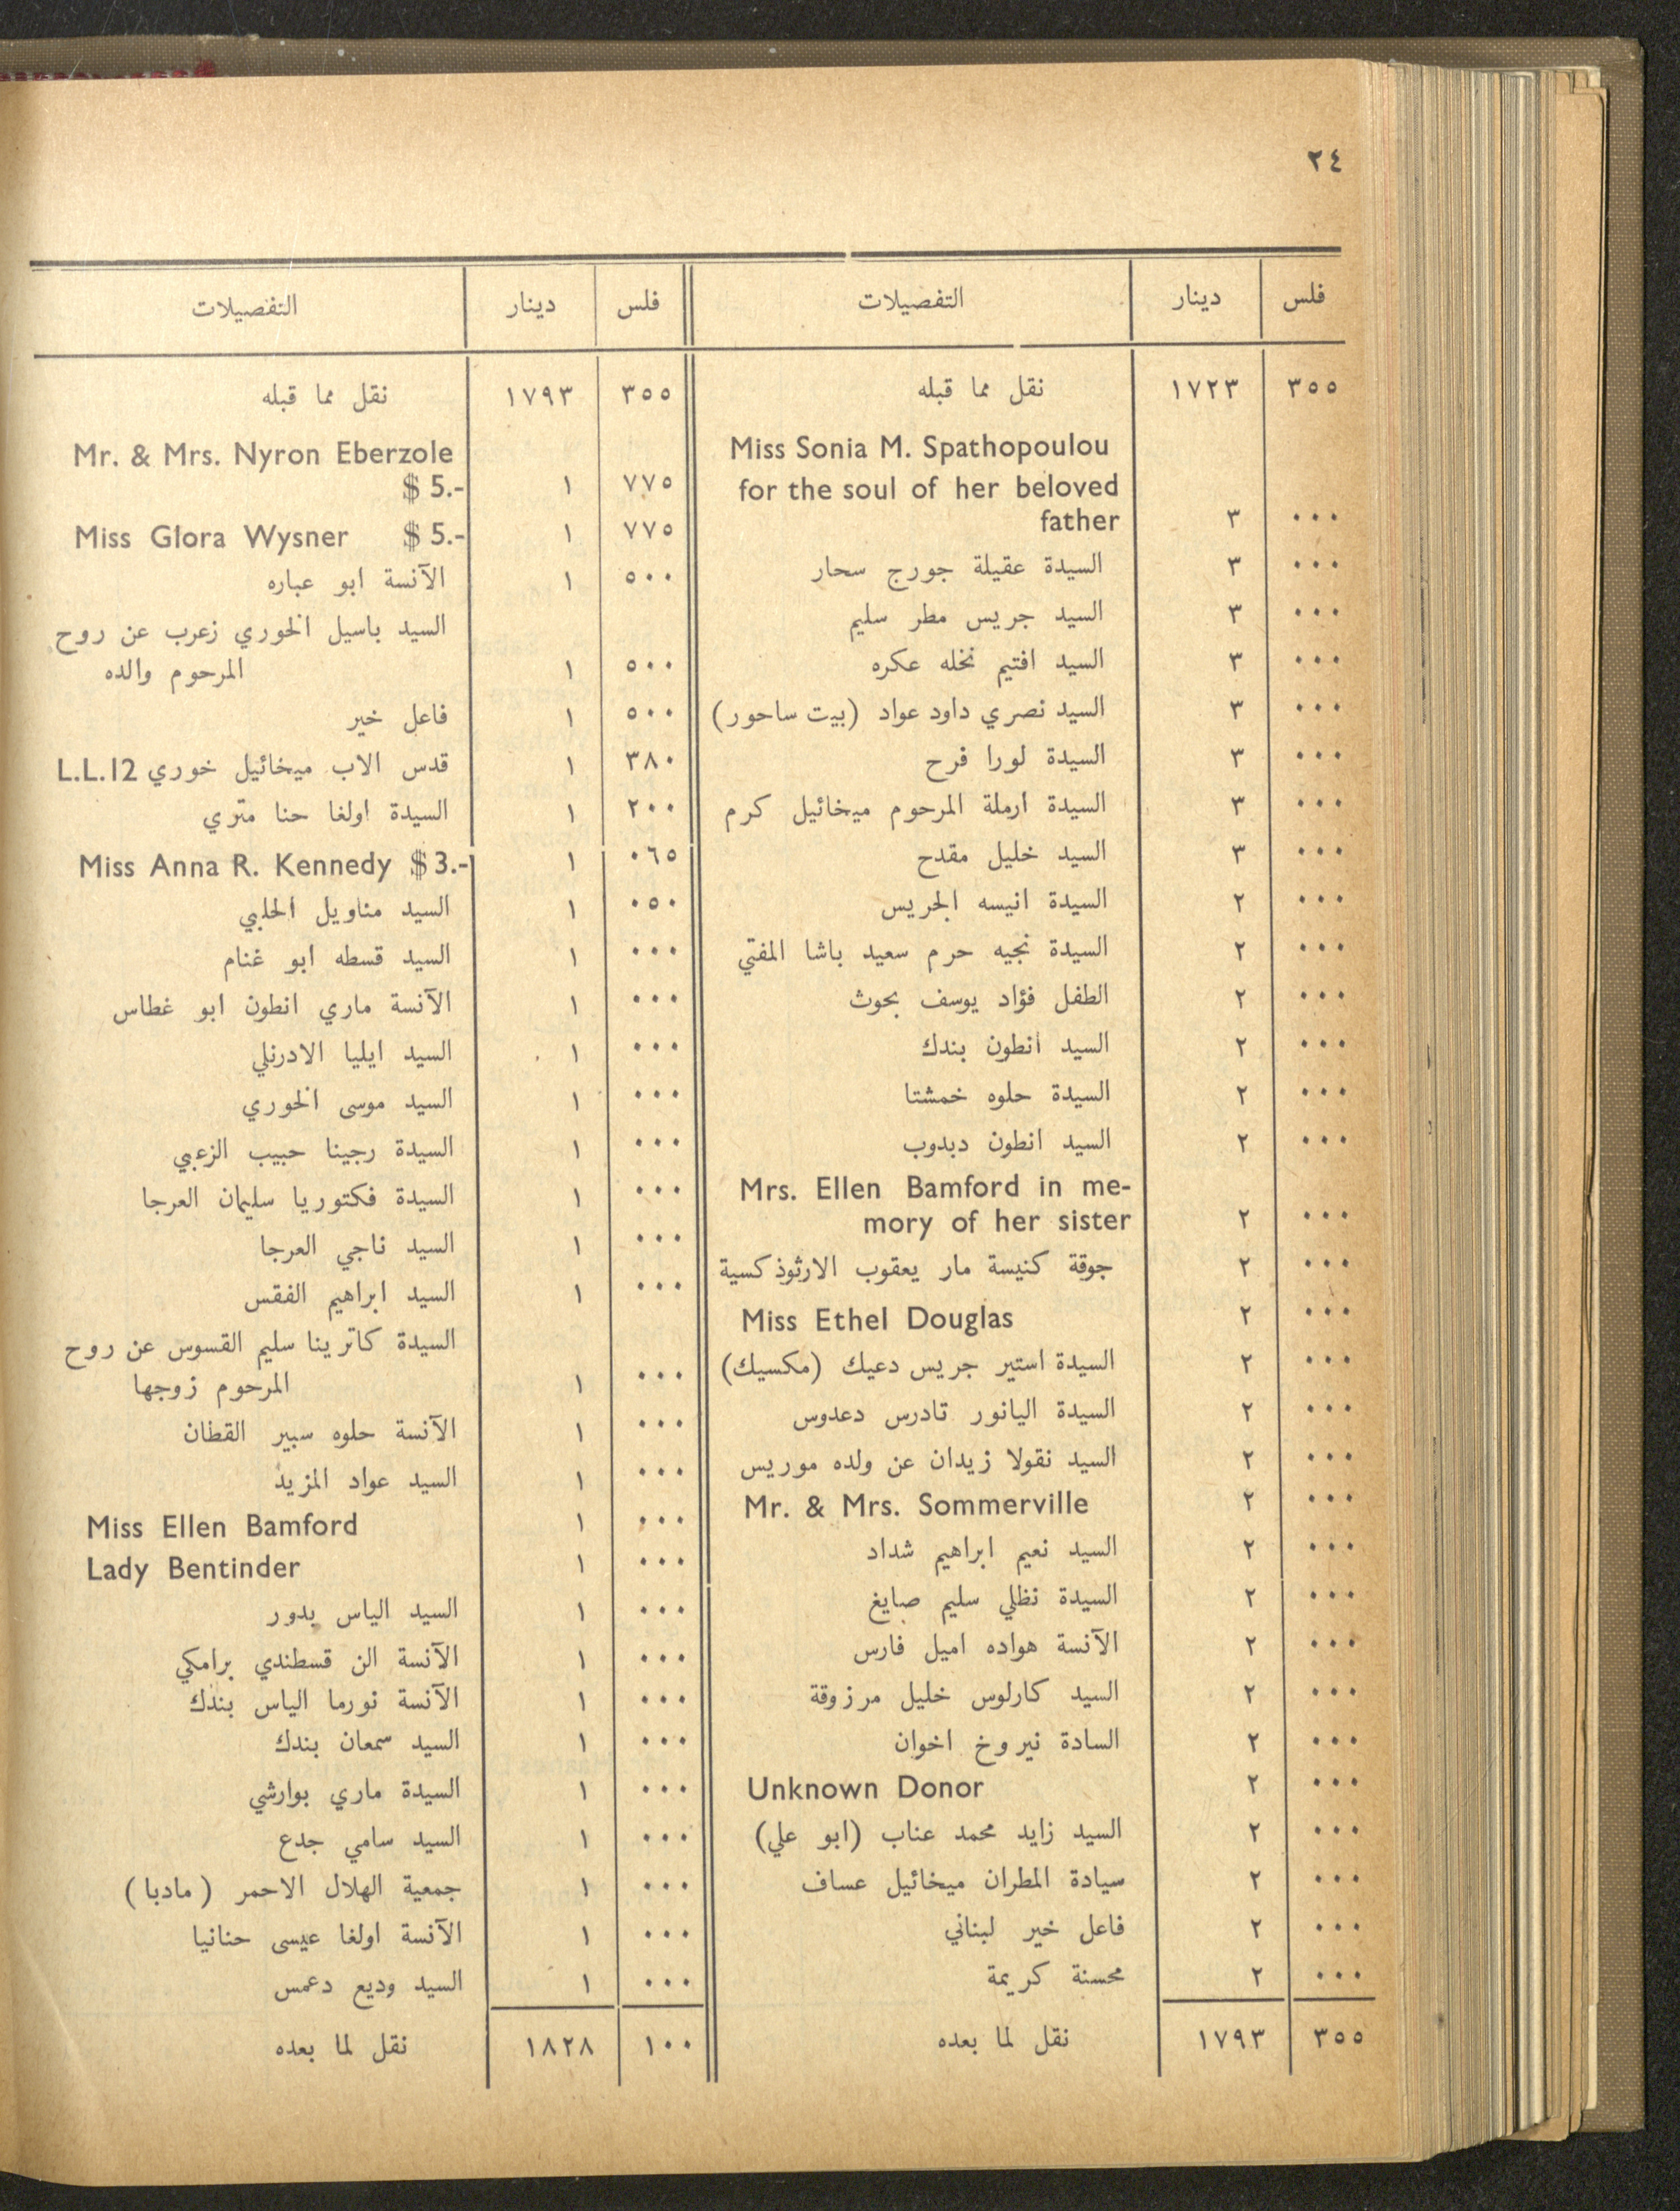 ٢٤
فلس دينار التفصيلات
٣٥٥ ١٧٢٣ نقل مما قبله
Miss Sonia M. Spathopoulou
for the soul of her beloved
٠٠٠ ٣ father
٠٠٠ ٣ السيدة عقيلة جورج سحار
٠٠٠ ٣ السيد جريس مطر سليم
٠٠٠ ٣ السيد افتيم نخله عكره
٠٠٠ ٣ السيد نصري داود عواد (بيت ساحور)
٠٠٠ ٣ السيدة لورا فرح
٠٠٠ ٣ السيدة ارملة المرحوم ميخائيل كرم
٠٠٠ ٣ السيد خليل مقدح
٠٠٠ ٢ السيدة انيسه الجريس
٠٠٠ ٢ السيدة نجيه حرم سعيد باشا المفتي
٠٠٠ ٢ الطفل فؤاد يوسف بحوث
٠٠٠ ٢ السيد انطون بندك
٠٠٠ ٢ السيدة حلوه خمشتا
٠٠٠ ٢ السيد انطون دبدوب
Mrs. Ellen Bamford in me-
٠٠٠ ٢ mory of her sister
٠٠٠ ٢ جوقة كنيسة مار يعقوب الارثوذكسية
٠٠٠ ٢ Miss Ethel Douglas
٠٠٠ ٢ السيدة استير جريس دعيك (مكسيك)
٠٠٠ ٢ السيدة اليانور تادرس دعدوس
٠٠٠ ٢ السيد نقولا زيدان عن ولده موريس
٠٠٠ ٢ Mr. & Mrs. Sommerville
٠٠٠ ٢ السيد نعيم ابراهيم شداد
٠٠٠ ٢ السيدة نظلي سليم صايغ
٠٠٠ ٢ الآنسة هواده اميل فارس
٠٠٠ ٢ السيد كارلوس خليل مرزوقة
٠٠٠ ٢ السادة نيروخ اخوان
٠٠٠ ٢ Unknown Donor
٠٠٠ ٢ السيد زايد محمد عناب (ابو علي)
٠٠٠ ٢ سيادة المطران ميخائيل عساف
٠٠٠ ٢ فاعل خير لبناني
٠٠٠ ٢ محسنة كريمة
٣٥٥ ١٧٩٣ نقل لما بعده
فلس دينار التفصيلات
٣٥٥ ١٧٩٣ نقل مما قبله
Mr. & Mrs. Nyron Eberzole
٧٧٥ ١ $ 5.-
٧٧٥ ١ Miss Glora Wysner $ 5.-
٥٠٠ ١ الآنسة ابو عباره
السيد باسيل الخوري زعرب عن روح
٥٠٠ ١ المرحوم والده
٥٠٠ ١ فاعل خير
٣٨٠ ١ قدس الاب ميخائيل خوري L.L.12
٢٠٠ ١ السيدة اولغا حنا متري
٠٦٥ ١ Miss Anna R. Kennedy $ 3.-
٠٥٠ ١ السيد مناويل الحلبي
٠٠٠ ١ السيد قسطه ابو غنام
٠٠٠ ١ الآنسة ماري انطون ابو غطاس
٠٠٠ ١ السيد ايليا الادرنلي
٠٠٠ ١ السيد موسى الخوري
٠٠٠ ١ السيدة رجينا حبيب الزعبي
٠٠٠ ١ السيدة فكتوريا سليمان العرجا
٠٠٠ ١ السيد ناجي العرجا
٠٠٠ ١ السيد ابراهيم الفقس
السيدة كاترينا سليم القسوس عن روح
٠٠٠ ١ المرحوم زوجها
٠٠٠ ١ الآنسة حلوه سبير القطان
٠٠٠ ١ السيد عواد المزيد
٠٠٠ ١ Miss Ellen Bamford
٠٠٠ ١ Lady Bentinder
٠٠٠ ١ السيد الياس بدور
٠٠٠ ١ الآنسة الن قسطندي برامكي
٠٠٠ ١ الآنسة نورما الياس بندك
٠٠٠ ١ السيد سمعان بندك
٠٠٠ ١ السيدة ماري بوارشي
٠٠٠ ١ السيد سامي جدع
٠٠٠ ١ جمعية الهلال الاحمر (مادبا)
٠٠٠ ١ الآنسة اولغا عيسى حنانيا
٠٠٠ ١ السيد وديع دعمس
١٠٠ ١٨٢٨ نقل لما بعده